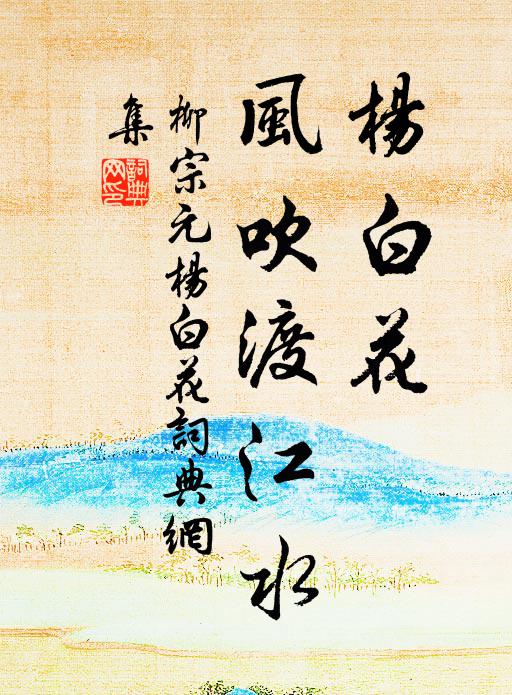 楊白花
風吹渡江水
柳宗元楊白花詞典網
集
詞典網印